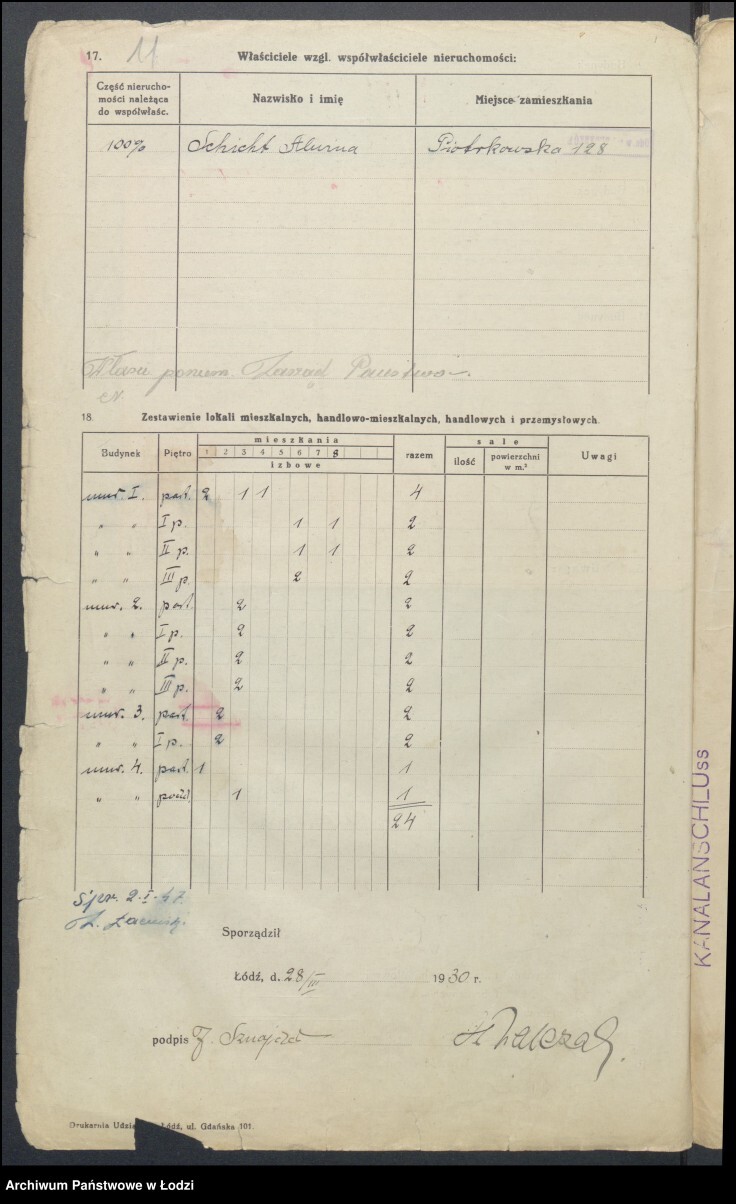 17. 11 Właściciele wzgl. współwłaściciele nieruchomości:
Część nierucho-
mości należąca
do współwłaśc.
Nazwisko i imię
Miejsce zamieszkania
100% Schicht Piotrkowska 128
Zarząd Państwo
18. Zestawienie lokali mieszkalnych, handlowo-mieszkalnych, handlowych i przemysłowych.
Budynek Piętro mieszkania razem sale Uwagi
1 2 3 4 5 6 7 8
izbowe
ilość powierzchni
w m.²
mur. I. part. 2 1 1 4
" " I p. 1 1 2
" " II p. 1 1 2
" " III p. 2 2
mur. 2. part. 2 2
" " I p. 2 2
" " II p. 2 2
" " III p. 2 2
mur. 3. part. 2 2
" " I p. 2 2
mur. 4. part. 1 1
" " 1 1
24
Spr. 2-I-47
Sporządził
Łódź, d. 28/III 1930 r.
podpis
Drukarnia Udzia Łódź, ul. Gdańska 101.
KANALANSCHLUss
Archiwum Państwowe w Łodzi